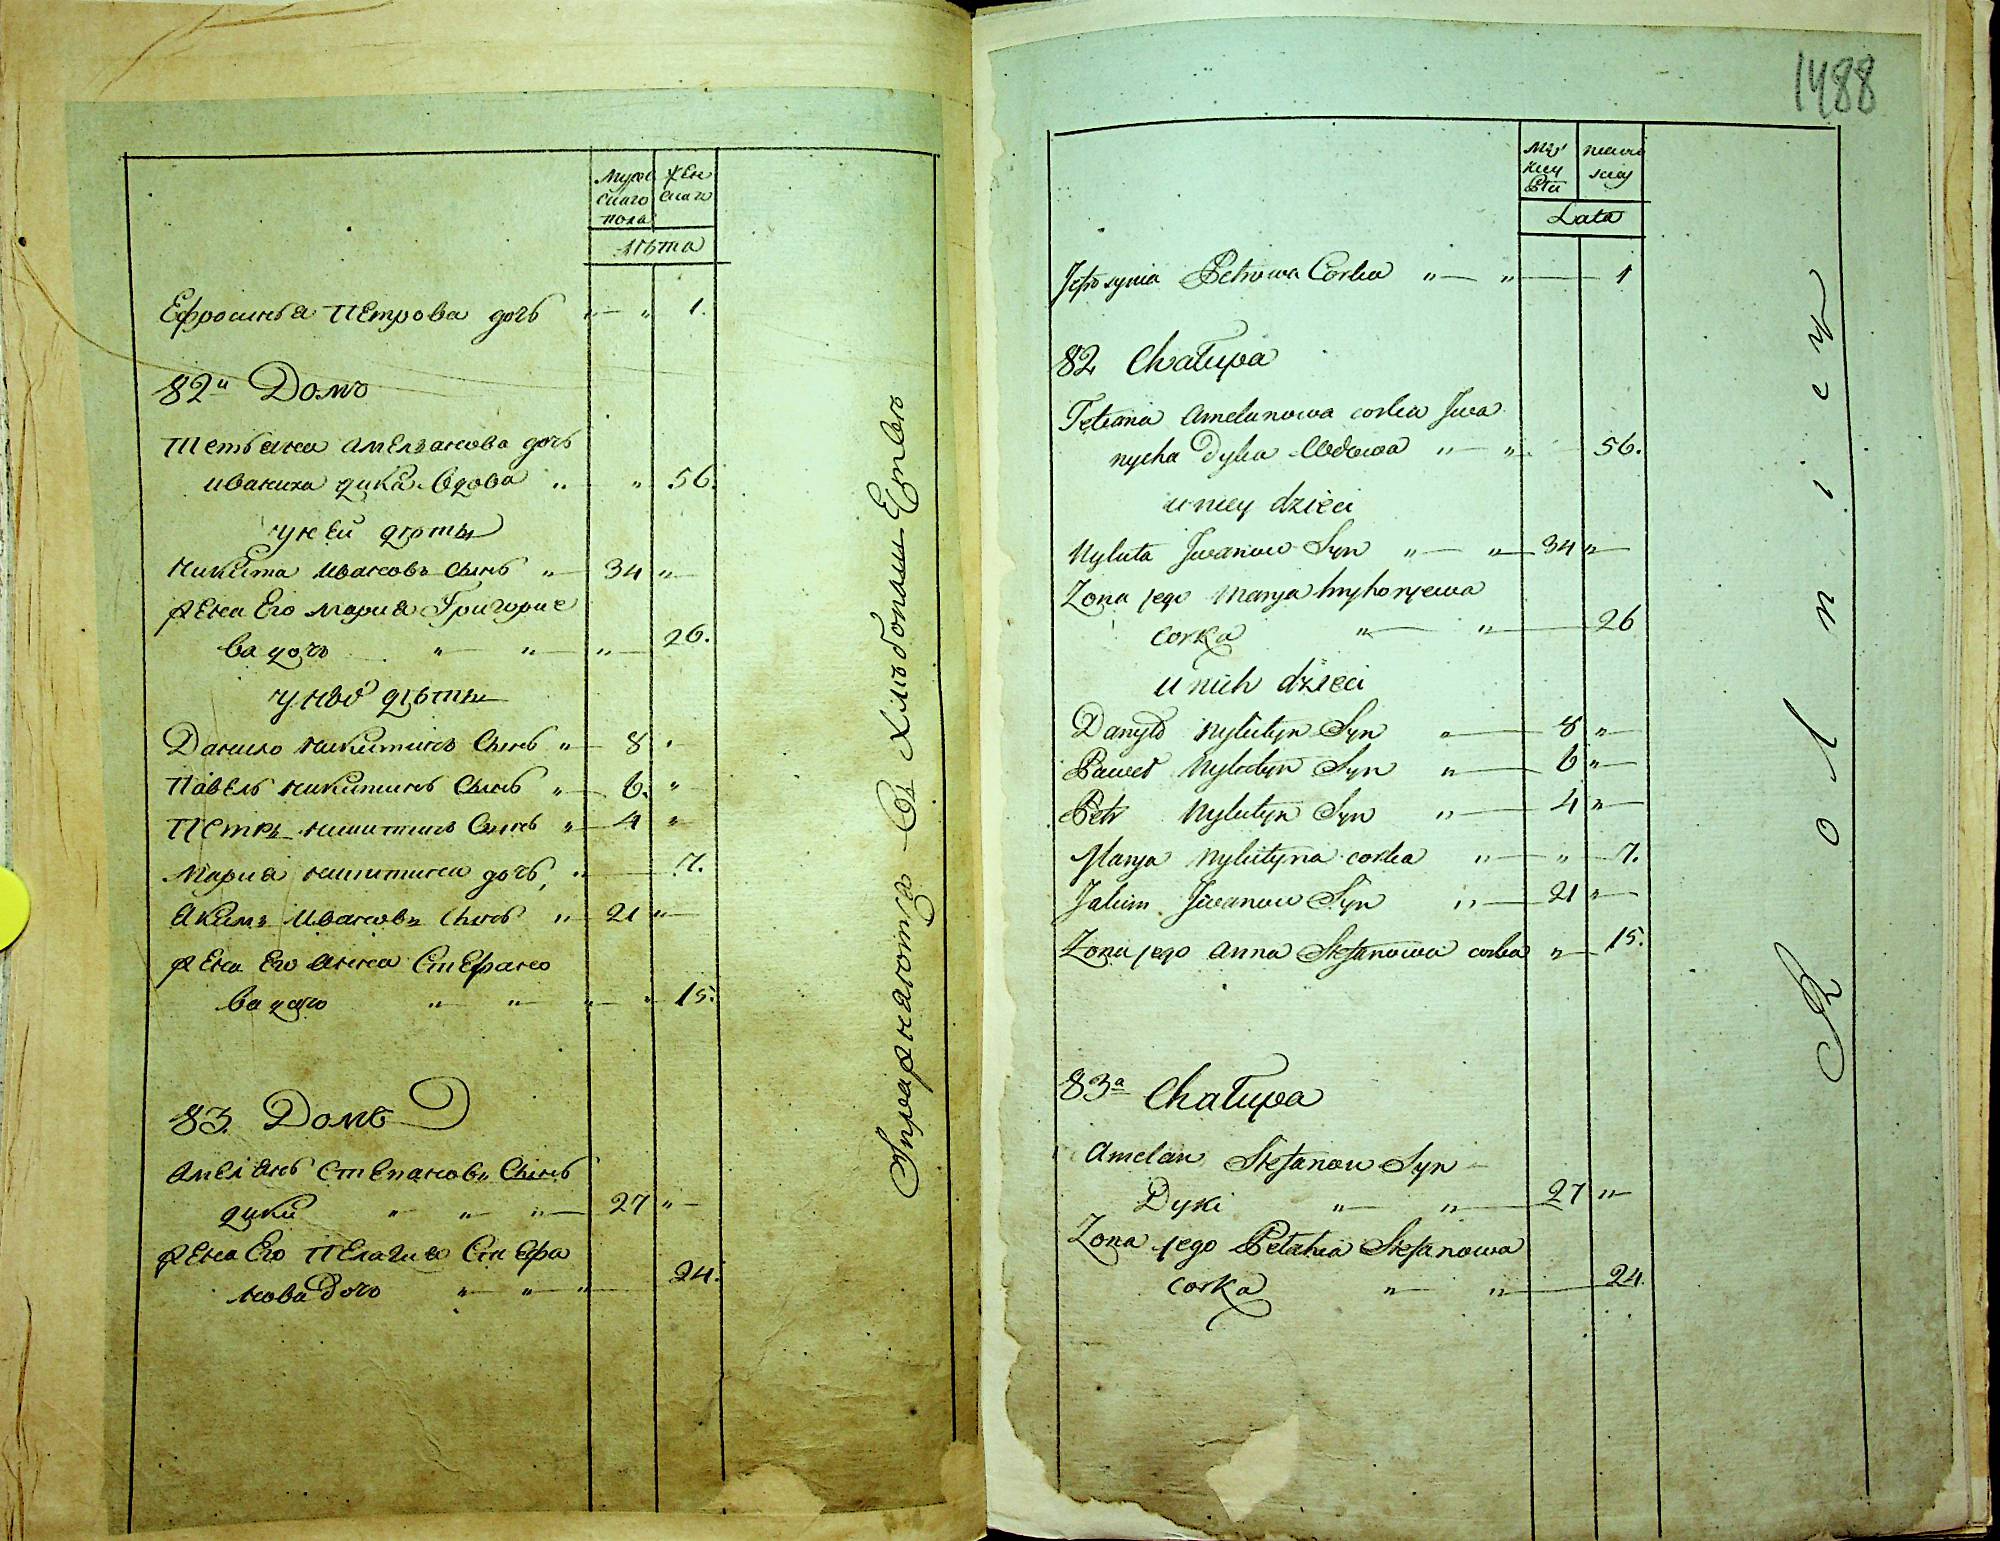 мужес
скаго
пола
жен
скаго
лѣта
Ефросинья Петрова дочь " — " 1.
82й Домъ
Тетьяна Амельянова дочь
Иваниха дика вдова " " 56.
у ней дѣти
Никита Ивановъ сынъ " — 34 " —
жена его Мария Григорие
ва дочь " — " — " — 26.
у ныхъ дѣти
Данило Никитинъ сынъ " — 8 "
Павелъ Никитинъ сынъ " — 6. "
Петръ Никитинъ сынъ " — 4 "
Мария Никитина дочь, " — 7.
Якимъ Ивановъ сынъ " — 21 " —
жена его Анна Стефано
ва дочь " — " — " — " 15.
83. Домъ
Амелянъ Степановъ сынъ
дикий " — " — " — 27 " —
жена его Пелагия Стефа
нова дочь " — " — " — 24.
Упражняются въ хлѣбопашествѣ
1488
Męz'
kiey
Płci
zens
kiey
Lata
Jefrosynia Petrowa Corka " — " — 1
82 Chałupa
Tetiana Amelanowa corka Jwa
nycha Dyka Wdowa " — " 56.
u niey dzieci
Nykita Jwanow Syn " — " — 34 " —
Zona jego Marya hryhoryewa
corka " — " — 26
u nich dzieci
Danyło Nykityn Syn " — 8 " —
Paweł Nykityn Syn " — 6 " —
Petr Nykityn Syn " — 4 " —
Marya Nykityna corka " — " — 7.
Jakim Jwanow Syn " — 21 " —
Zona jego Anna Stefanowa corka " — 15.
83a Chałupa
Amelan Stefanow Syn
Dyki " — " — 27 " —
Zona jego Pelahia Stefanowa
corka " — " — 24.
Rolnicy